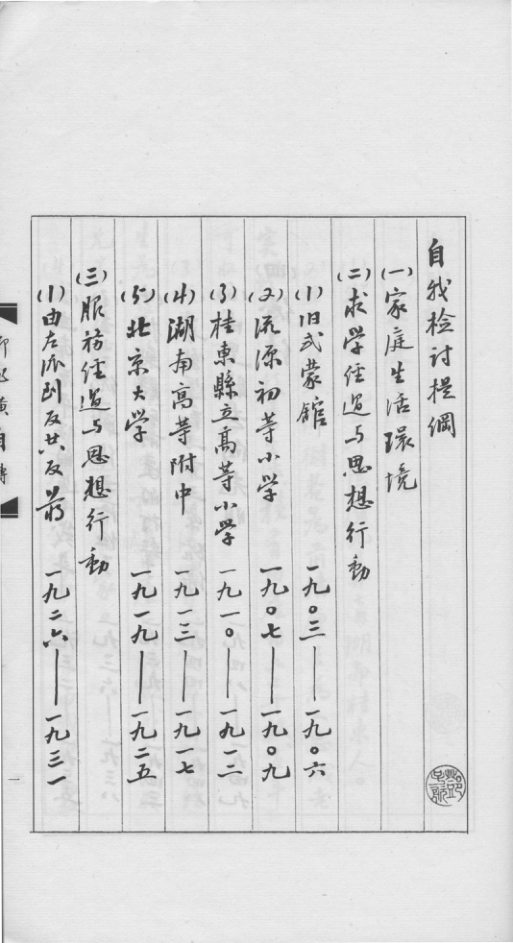 自我检討提綱
(一)家庭生活環境
(二)求学经过与思想行動
(1)旧式蒙舘 一九〇三——一九〇六
(2)流源初等小学 一九〇七——一九〇九
(3)桂東縣立高等小学 一九一〇——一九一二
(4)湖南高等附中 一九一三——一九一七
(5)北京大学 一九一九——一九二五
(三)服務经过与思想行動
(1)由左派到反共反蔣 一九二六——一九三一
一